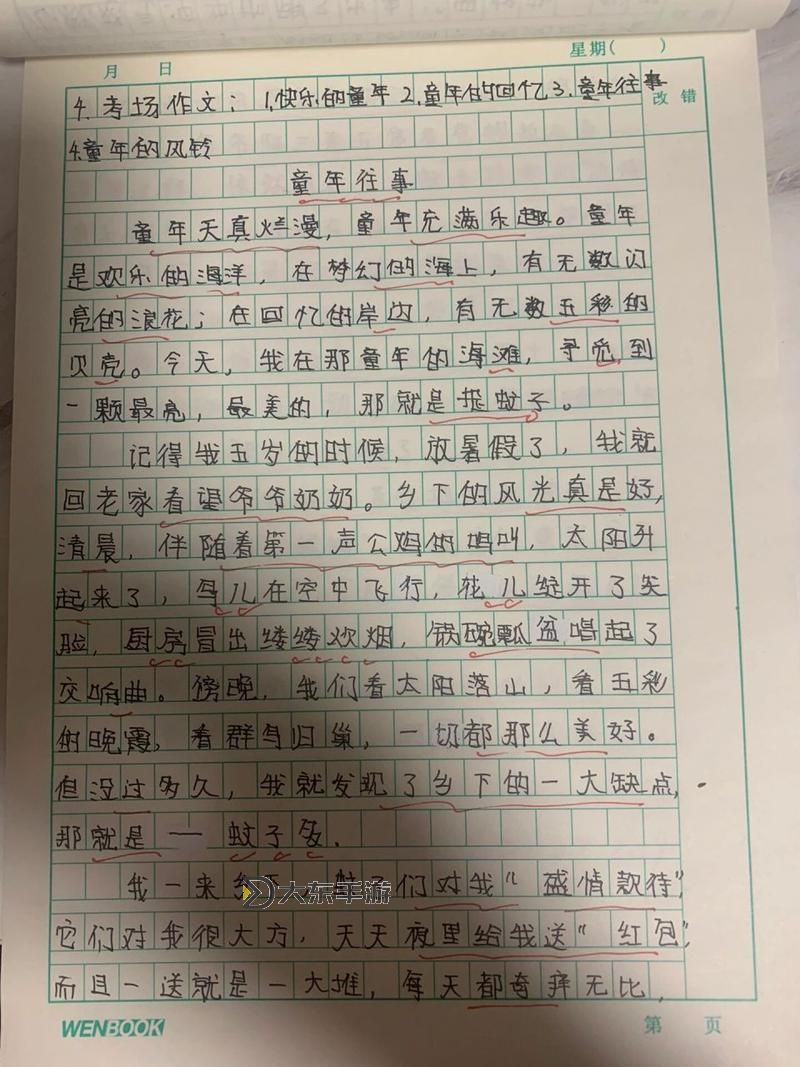 月 日 星期( )
4.考场作文：1.快乐的童年 2.童年的回忆 3.童年往事
改 错
4.童年的风铃
童年往事
童年天真烂漫，童年充满乐趣。童年
是欢乐的海洋，在梦幻的海上，有无数闪
亮的浪花；在回忆的岸边，有无数五彩的
贝壳。今天，我在那童年的海滩，寻觅到
一颗最亮，最美的，那就是捉蚊子。
记得我五岁的时候，放暑假了，我就
回老家看望爷爷奶奶。乡下的风光真是好，
清晨，伴随着第一声公鸡的鸣叫，太阳升
起来了，鸟儿在空中飞行，花儿绽开了笑
脸，厨房冒出缕缕炊烟，锅碗瓢盆唱起了
交响曲。傍晚，我们看太阳落山，看五彩
的晚霞，看群鸟归巢，一切都那么美好。
但没过多久，我就发现了乡下的一大缺点，
那就是——蚊子多.
我一来乡下，蚊子们对我“盛情款待”，
大东手游
它们对我很大方，天天夜里给我送“红包”，
而且一送就是一大堆，每天都奇痒无比，
WENBOOK 第 页